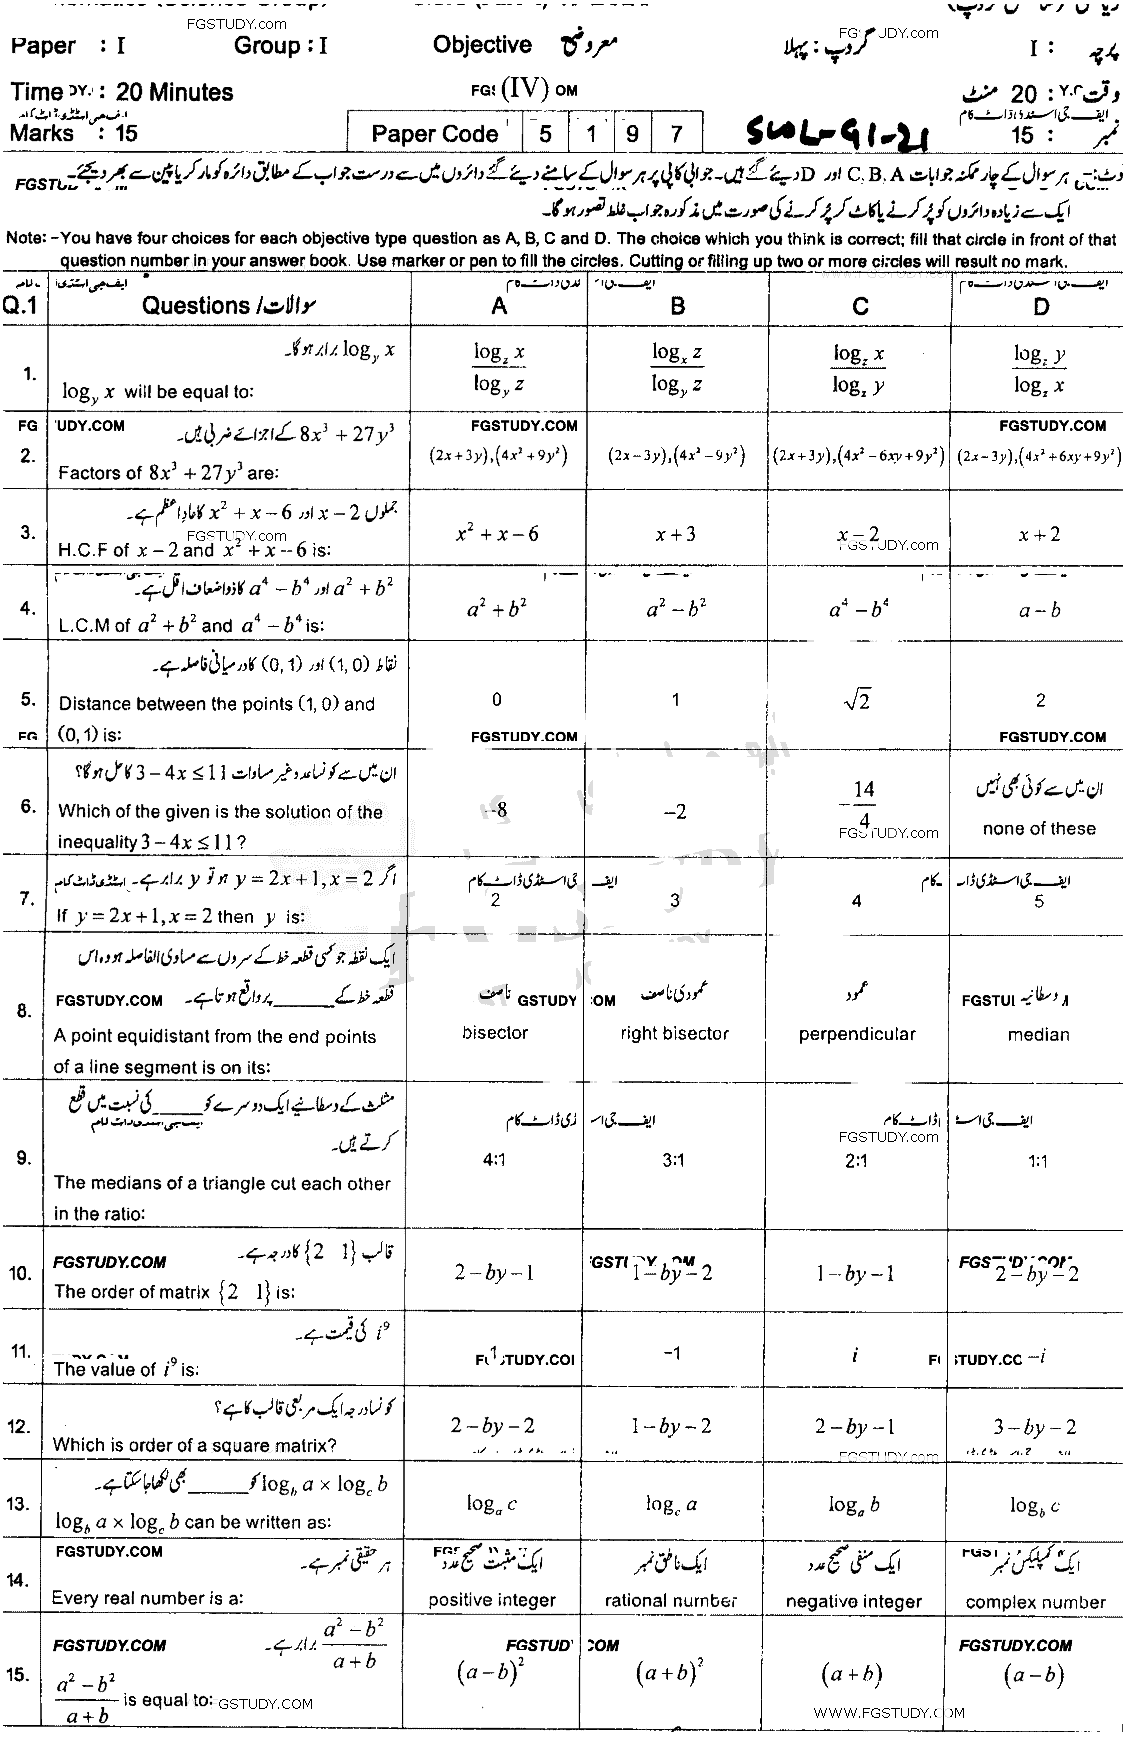 FGSTUDY.com
Paper : I Group : I Objective معروضی گروپ : پہلا پرچہ : I
Time : 20 Minutes (IV) وقت : 20 منٹ
Marks : 15 Paper Code 5 1 9 7 SWL-91-21 نمبر : 15
نوٹ:- ہر سوال کے چار ممکنہ جوابات C, B, A اور D دیئے گئے ہیں۔ جوابی کاپی پر ہر سوال کے سامنے دیئے گئے دائروں میں سے درست جواب کے مطابق دائرہ کو مارکر یا پین سے بھر دیجئے۔
ایک سے زیادہ دائروں کو پُر کرنے یا کاٹ کر پُر کرنے کی صورت میں مذکورہ جواب غلط تصور ہو گا۔
Note: -You have four choices for each objective type question as A, B, C and D. The choice which you think is correct; fill that circle in front of that
question number in your answer book. Use marker or pen to fill the circles. Cutting or filling up two or more circles will result no mark.
Q.1 Questions / سوالات A B C D
1. log_y x برابر ہو گا۔
log_y x will be equal to: log_z x / log_y z log_x z / log_y z log_z x / log_z y log_z y / log_z x
FGSTUDY.COM
2. 8x³ + 27y³ کے اجزائے ضربی ہیں۔
Factors of 8x³ + 27y³ are: (2x+3y),(4x²+9y²) (2x-3y),(4x²-9y²) (2x+3y),(4x²-6xy+9y²) (2x-3y),(4x²+6xy+9y²)
3. جملوں x-2 اور x² + x - 6 کا عاد اعظم ہے۔
FGSTUDY.com
H.C.F of x - 2 and x² + x - 6 is: x² + x - 6 x + 3 x - 2 x + 2
4. a² + b² اور a⁴ - b⁴ کا ذواضعاف اقل ہے۔
L.C.M of a² + b² and a⁴ - b⁴ is: a² + b² a² - b² a⁴ - b⁴ a - b
5. نقاط (1, 0) اور (0, 1) کا درمیانی فاصلہ ہے۔
Distance between the points (1, 0) and
(0, 1) is: 0 1 √2 2
FGSTUDY.COM FGSTUDY.COM
6. ان میں سے کونسا عدد غیر مساوات 3 - 4x ≤ 11 کا حل ہو گا؟
Which of the given is the solution of the
inequality 3 - 4x ≤ 11 ? -8 -2 -14/4 ان میں سے کوئی بھی نہیں none of these
7. اگر y = 2x + 1, x = 2 ہو تو y برابر ہے۔
If y = 2x + 1, x = 2 then y is: 2 3 4 5
8. ایک نقطہ جو کسی قطعہ خط کے سروں سے مساوی الفاصلہ ہو وہ اس
قطعہ خط کے ______ پر واقع ہوتا ہے۔ ناصف عمودی ناصف عمود وسطانیہ
FGSTUDY.COM
A point equidistant from the end points
of a line segment is on its: bisector right bisector perpendicular median
9. مثلث کے وسطانیے ایک دوسرے کو _____ کی نسبت میں قطع
کرتے ہیں۔
The medians of a triangle cut each other
in the ratio: 4:1 3:1 2:1 1:1
FGSTUDY.com
10. FGSTUDY.COM قالب {2 1} کا درجہ ہے۔
The order of matrix {2 1} is: 2-by-1 1-by-2 1-by-1 2-by-2
11. i⁹ کی قیمت ہے۔
The value of i⁹ is: 1 -1 i -i
12. کونسا درجہ ایک مربعی قالب کا ہے؟
Which is order of a square matrix? 2-by-2 1-by-2 2-by-1 3-by-2
FGSTUDY.com
13. log_b a × log_c b کو ______ بھی لکھا جا سکتا ہے۔
log_b a × log_c b can be written as: log_a c log_c a log_a b log_b c
14. FGSTUDY.COM ہر حقیقی نمبر ہے۔ ایک مثبت صحیح عدد ایک ناطق نمبر ایک منفی صحیح عدد ایک کمپلیکس نمبر
Every real number is a: positive integer rational number negative integer complex number
15. FGSTUDY.COM a² - b² / a + b برابر ہے۔
a² - b² / a + b is equal to: (a - b)² (a + b)² (a + b) (a - b)
WWW.FGSTUDY.COM